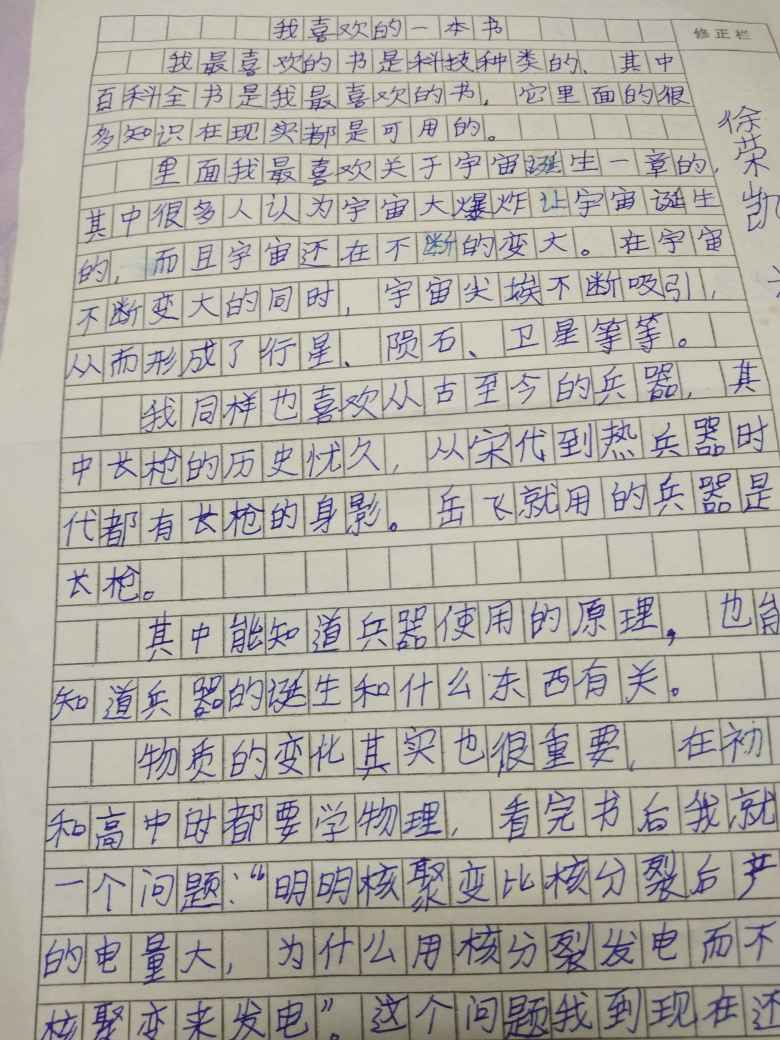 我喜欢的一本书
修正栏
我最喜欢的书是科技种类的、其中
百科全书是我最喜欢的书，它里面的很
多知识在现实都是可用的。
里面我最喜欢关于宇宙诞生一章的，
其中很多人认为宇宙大爆炸让宇宙诞生
的，而且宇宙还在不断的变大。在宇宙
不断变大的同时，宇宙尖埃不断吸引，
从而形成了行星、陨石、卫星等等。
我同样也喜欢从古至今的兵器，其
中长枪的历史忧久，从宋代到热兵器时
代都有长枪的身影。岳飞就用的兵器是
长枪。
其中能知道兵器使用的原理，也能
知道兵器的诞生和什么东西有关。
物质的变化其实也很重要，在初
和高中时都要学物理，看完书后我就
一个问题：“明明核聚变比核分裂后产
的电量大，为什么用核分裂发电而不
核聚变来发电”。这个问题我到现在还
徐荣凯